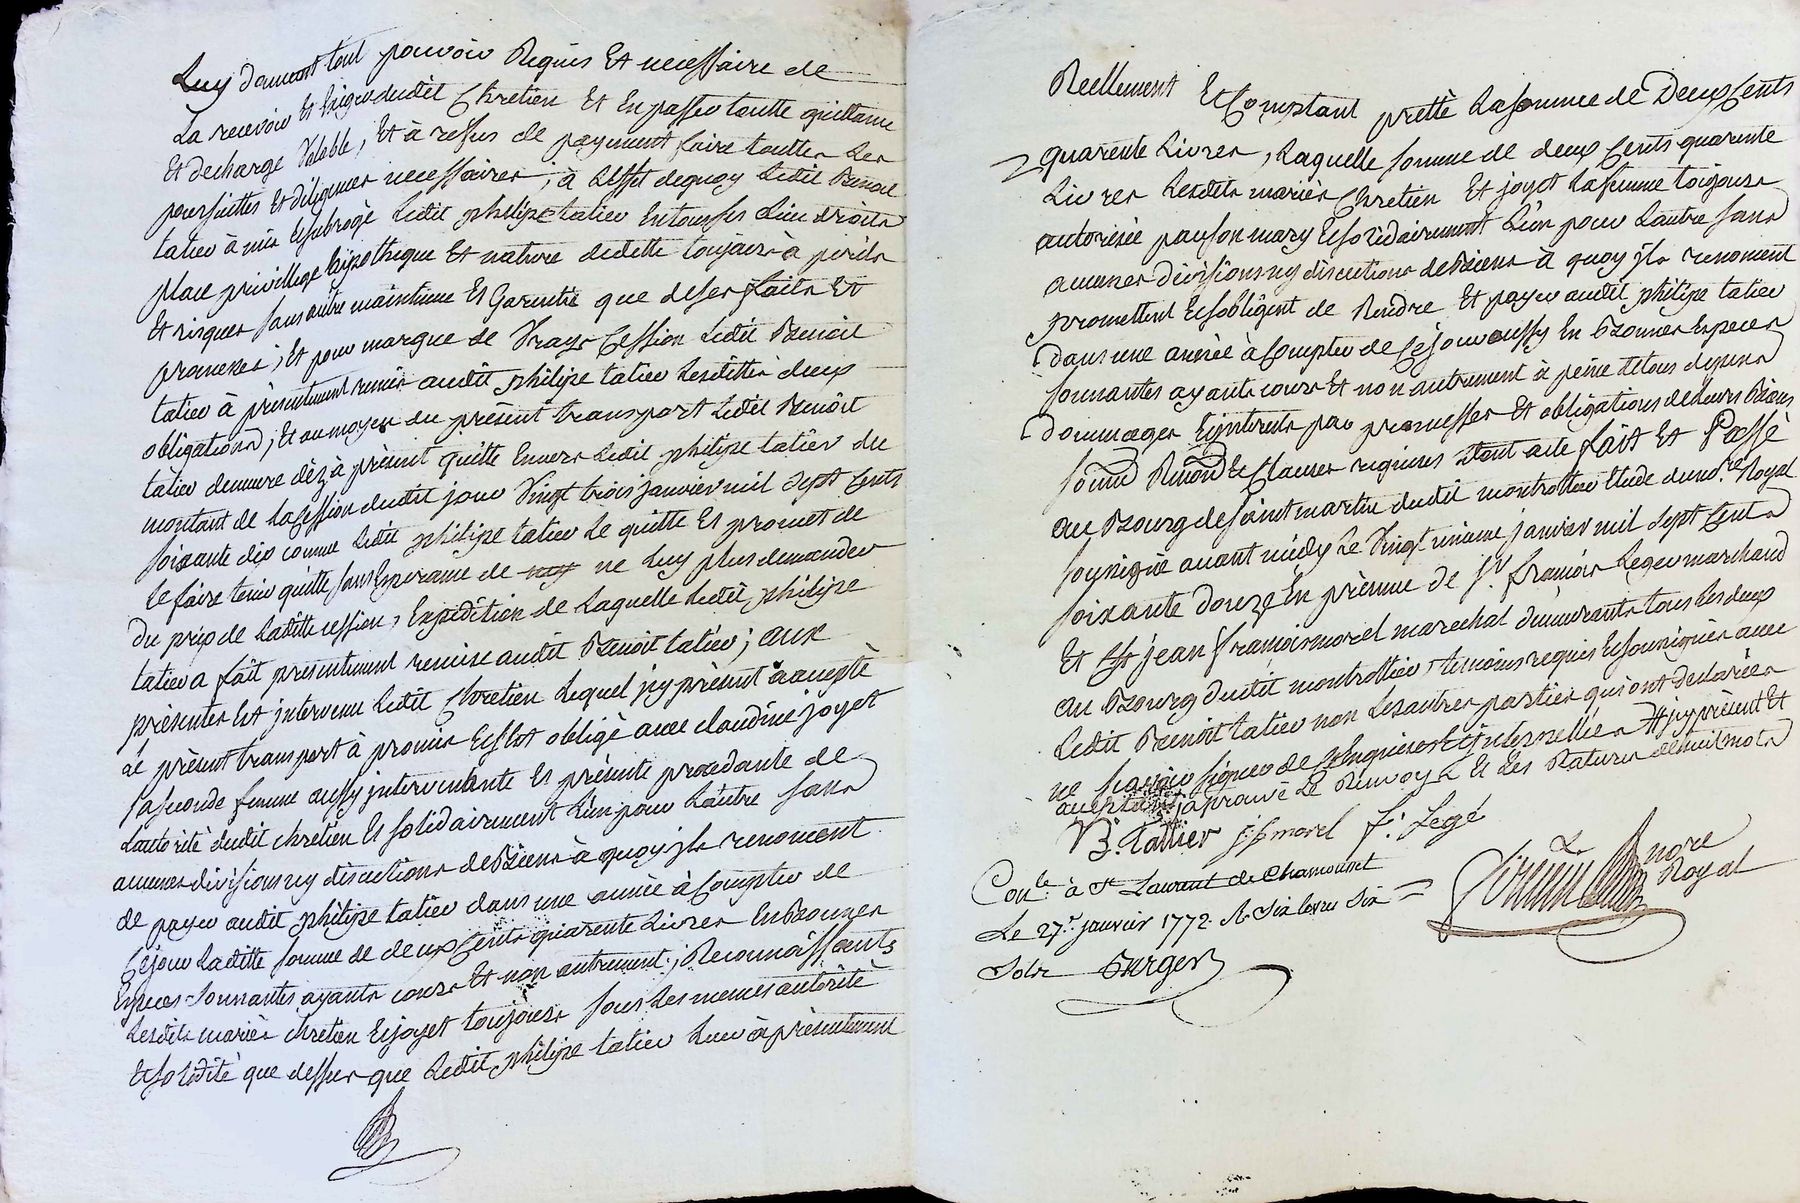 Luy donnant tout pouvoir Requis Et necessaire de
La recevoir Et Exiger dudit Chretien Et En passer toutte quittance
Et decharge Valable, Et à refus de payement faire touttes les
poursuittes Et diligences necessaires, à L'effet dequoy Ledit Benoit
tatier à mis Et subrogé Ledit philipe tatier En tous ses Lieu droits
place privillege hipotheque Et nature dedette toujours à perils
Et risques sans autre maintenue Et Garentie que de ses faits Et
promesses; Et pour marque de Vraye Cession Ledit Benoit
tatier à présentement remis audit philipe tatier Lesdittes deux
obligations; Et au moyen du présent transport Ledit Benoit
tatier demeure dèz à présent quitte Envers Ledit philipe tatier du
montant de La Cession dudit jour Vingt trois janvier mil sept Cents
soixante dix comme Ledit philipe tatier Le quitte Et promet de
le faire tenir quitte sans Esperance de ne Luy plus demander
du prix de Laditte cession, Expédition de Laquelle Ledit philipe
tatier a fait présentement remise audit Benoit tatier; aux
présentes Est intervenu Ledit Chretien Lequel jcy présent à accepté
Le présent transport à promis Et s'est obligé avec claudine joyet
sa seconde femme aussy intervenante Et présente procedante de
L'autorité dudit chretien Et solidairement L'un pour L'autre sans
aucunes divisions ny discutions de Biens à quoy jls renoncent
de payer audit philipe tatier dans une année à Compter de
Cejour Laditte somme de deux Cents quarente Livres En Bonnes
Especes Sonnantes ayants cours Et non autrement; Reconnoissants
Lesdits mariés chretien Et joyet toujours sous Les memes autorité
Et solidité que dessus que Ledit philipe tatier Leur à présentement
Reellement Et Comptant pretté La somme de Deux Cents
quarente Livres, Laquelle somme de deux Cents quarente
Livres Lesdits mariés Chretien Et joyet La femme toujours
autorisée par son mary Et solidairement L'un pour L'autre sans
aucunes divisions ny discutions de Biens à quoy jls renoncent
promettent Et s'obligent de Rendre Et payer audit philipe tatier
dans une année à Compter de Cejour aussy En Bonnes Especes
sonnantes ayants cours Et non autrement à peine de tous depens
dommages Et jnterests par promesses Et obligations de leurs Biens
soumis Renond Et Clauses requises dont acte fait Et Passé
au Bourg de saint martin dudit montrottier Etude du nore Royal
soussigné avant midy Le Vingt uniéme janvier mil sept Cents
soixante douze En présence de sr françois Leger marchand
Et sr jean françois morel marechal demeurants tous Les deux
au Bourg dudit montrottier, temoins requis Et soussignés avec
Ledit Benoit tatier non Les autres parties qui ont declarées
ne scavoir signer de Ce Enquises Et jnterpellées # jcy présent Et
acceptant japrouve Le Renvoy Et les Ratures de huit mots
B. Tatier jf morel f. Legé
Conlé à St Laurent de Chamousset
Le 27e janvier 1772. R. Six livres Six =
Sols Burger
nore
Royal